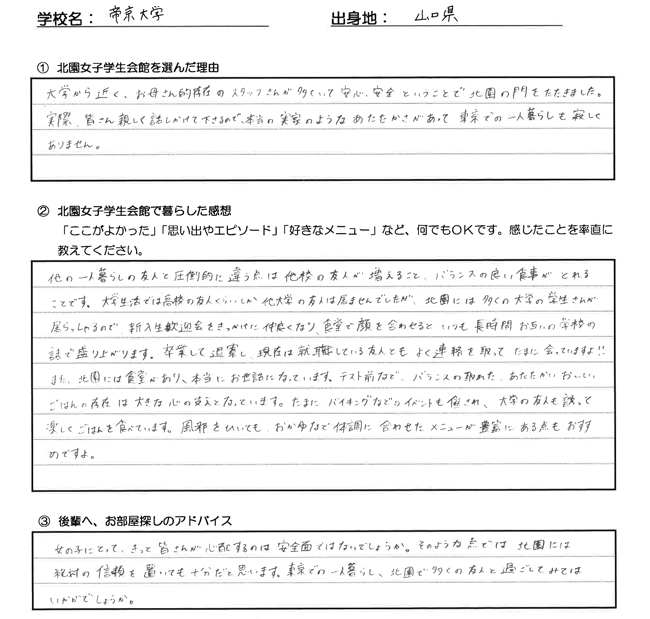 学校名： 帝京大学
出身地： 山口県
① 北園女子学生会館を選んだ理由
大学から近く、お母さん的存在のスタッフさんが多くいて安心、安全ということで北園の門をたたきました。
実際、皆さん親しく話しかけて下さるので、本当の実家のようなあたたかさがあって東京での一人暮らしも寂しく
ありません。
② 北園女子学生会館で暮らした感想
「ここがよかった」「思い出やエピソード」「好きなメニュー」など、何でもOKです。感じたことを率直に
教えてください。
他の一人暮らしの友人と圧倒的に違う点は他校の友人が増えること、バランスの良い食事がとれる
ことです。大学生活では高校の友人くらいしか他大学の友人は居ませんでしたが、北園には多くの大学の学生さんが
居らっしゃるので、新入生歓迎会をきっかけに仲良くなり、食堂で顔を合わせるといつも長時間お互いの学校の
話で盛り上がります。卒業して退寮し、現在は就職している友人ともよく連絡を取ってたまに会っていますよ!!
また、北園には食堂があり、本当にお世話になっています。テスト前など、バランスの取れた、あたたかいおいしい
ごはんの存在は大きな心の支えとなっています。たまにバイキングなどのイベントも催され、大学の友人も誘って
楽しくごはんを食べています。風邪をひいても、おかゆなど体調に合わせたメニューが豊富にある点もおすす
めですよ。
③ 後輩へ、お部屋探しのアドバイス
女の子にとって、きっと皆さんが心配するのは安全面ではないでしょうか。そのような点では北園には
絶対の信頼を置いても十分だと思います。東京での一人暮らし、北園で多くの友人と過ごしてみては
いかがでしょうか。